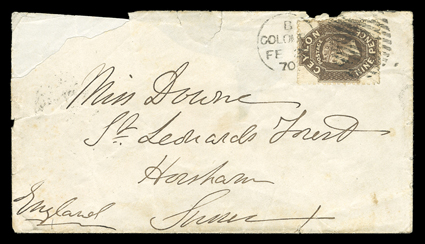 B
COLOM
FE
70
CEYLON
POSTAGE
NINE PENCE
Miss Downe
St. Leonards Forest
Horsham
Sussex
England